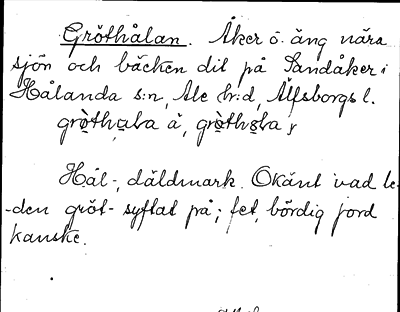 Gröthålan. Åker o. äng nära
sjön och bäcken dit på Sandåker i
Hålanda s:n, Ale hr:d, Älfsborgs l.
Hål-, däldmark. Okänt vad le-
-den gröt- syftat på; fet, bördig jord
kanske.